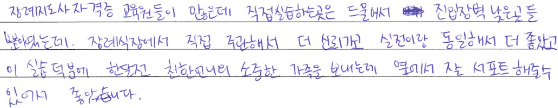 장례지도사 자격증 교육원들이 많은데 직접실습하는곳은 드물어서 진입장벽 낮은곳들
뿐이었는데. 장례식장에서 직접 주관해서 더 신뢰가고 실전이랑 동일해서 더 좋았고
이 실습 덕분에 한달전 친한언니의 소중한 가족을 보내는데 옆에서 자는 서포트 해줄수
있어서 좋았습니다.